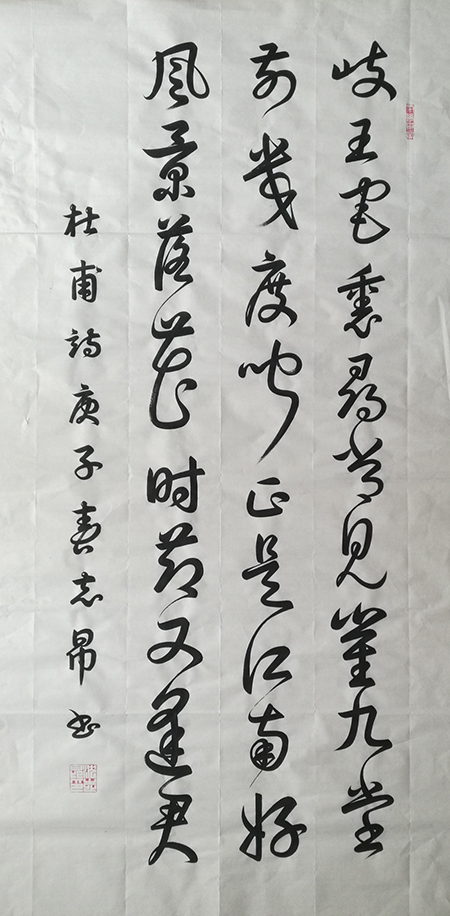 岐王宅裏尋常見崔九堂
前幾度聞正是江南好
風景落花时節又逢君
杜甫詩庚子春志昂书